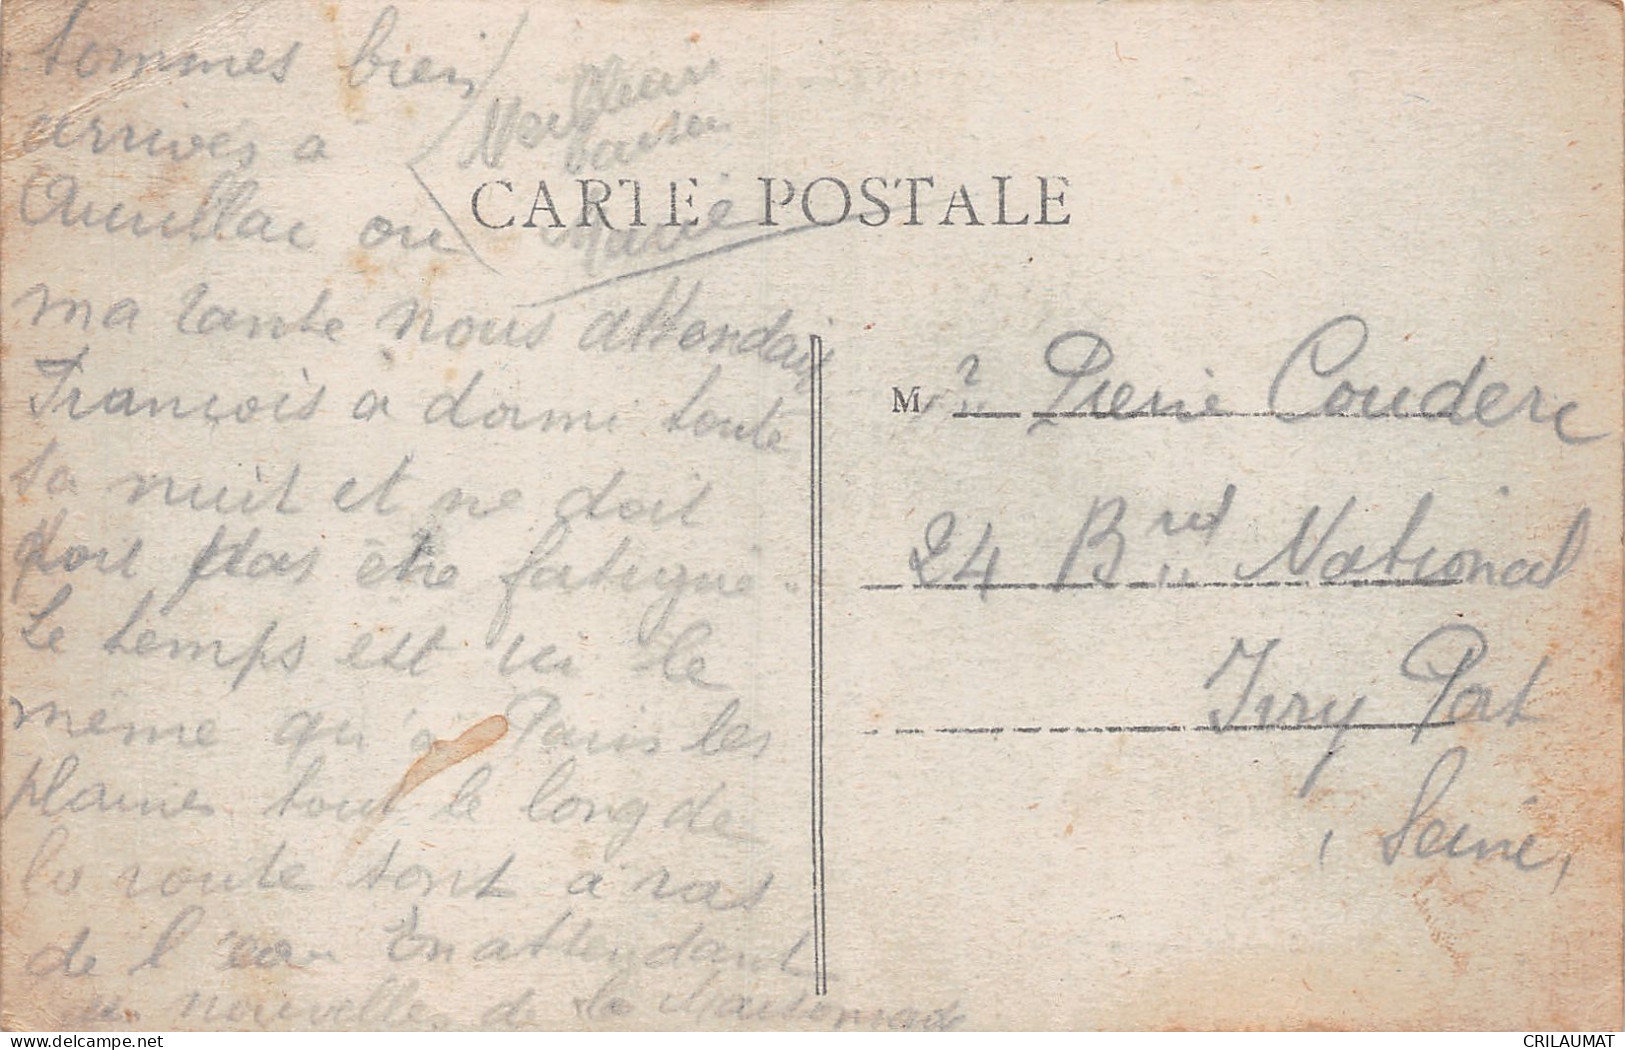 sommes bien
arrivés a
Aurillac ou
ma tante nous attendais
François a dormi toute
sa nuit et ne doit
pas être fatigué.
Le temps est ici le
même qu'a Paris les
plaines tout le long de
la route sont a ras
de l'eau En attendant
nouvelles de la
Meilleurs
baisers
Marie
CARTE POSTALE
Mr Pierre Couderc
24 Brd National
Ivry Port
(Seine)
CRILAUMAT